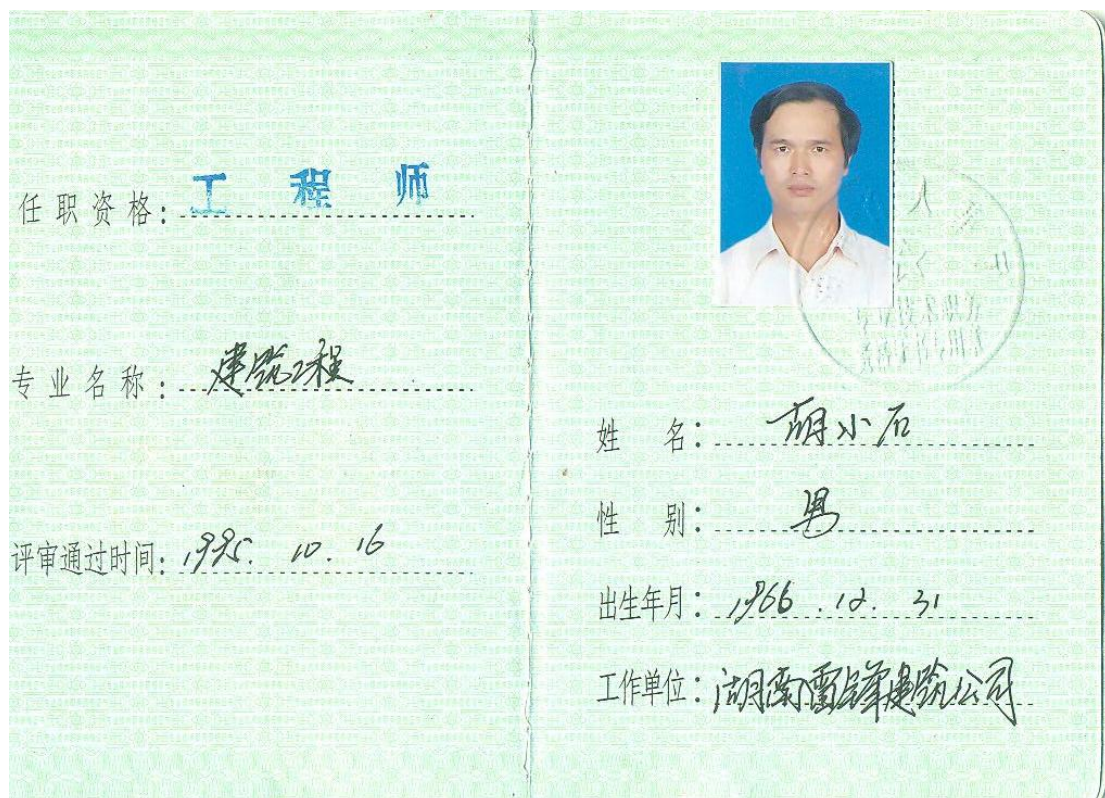 任职资格: 工程师
专业名称: 建筑工程
评审通过时间: 1995. 10. 16
姓 名: 胡小石
性 别: 男
出生年月: 1966. 12. 31
工作单位: 湖南雷锋建筑公司